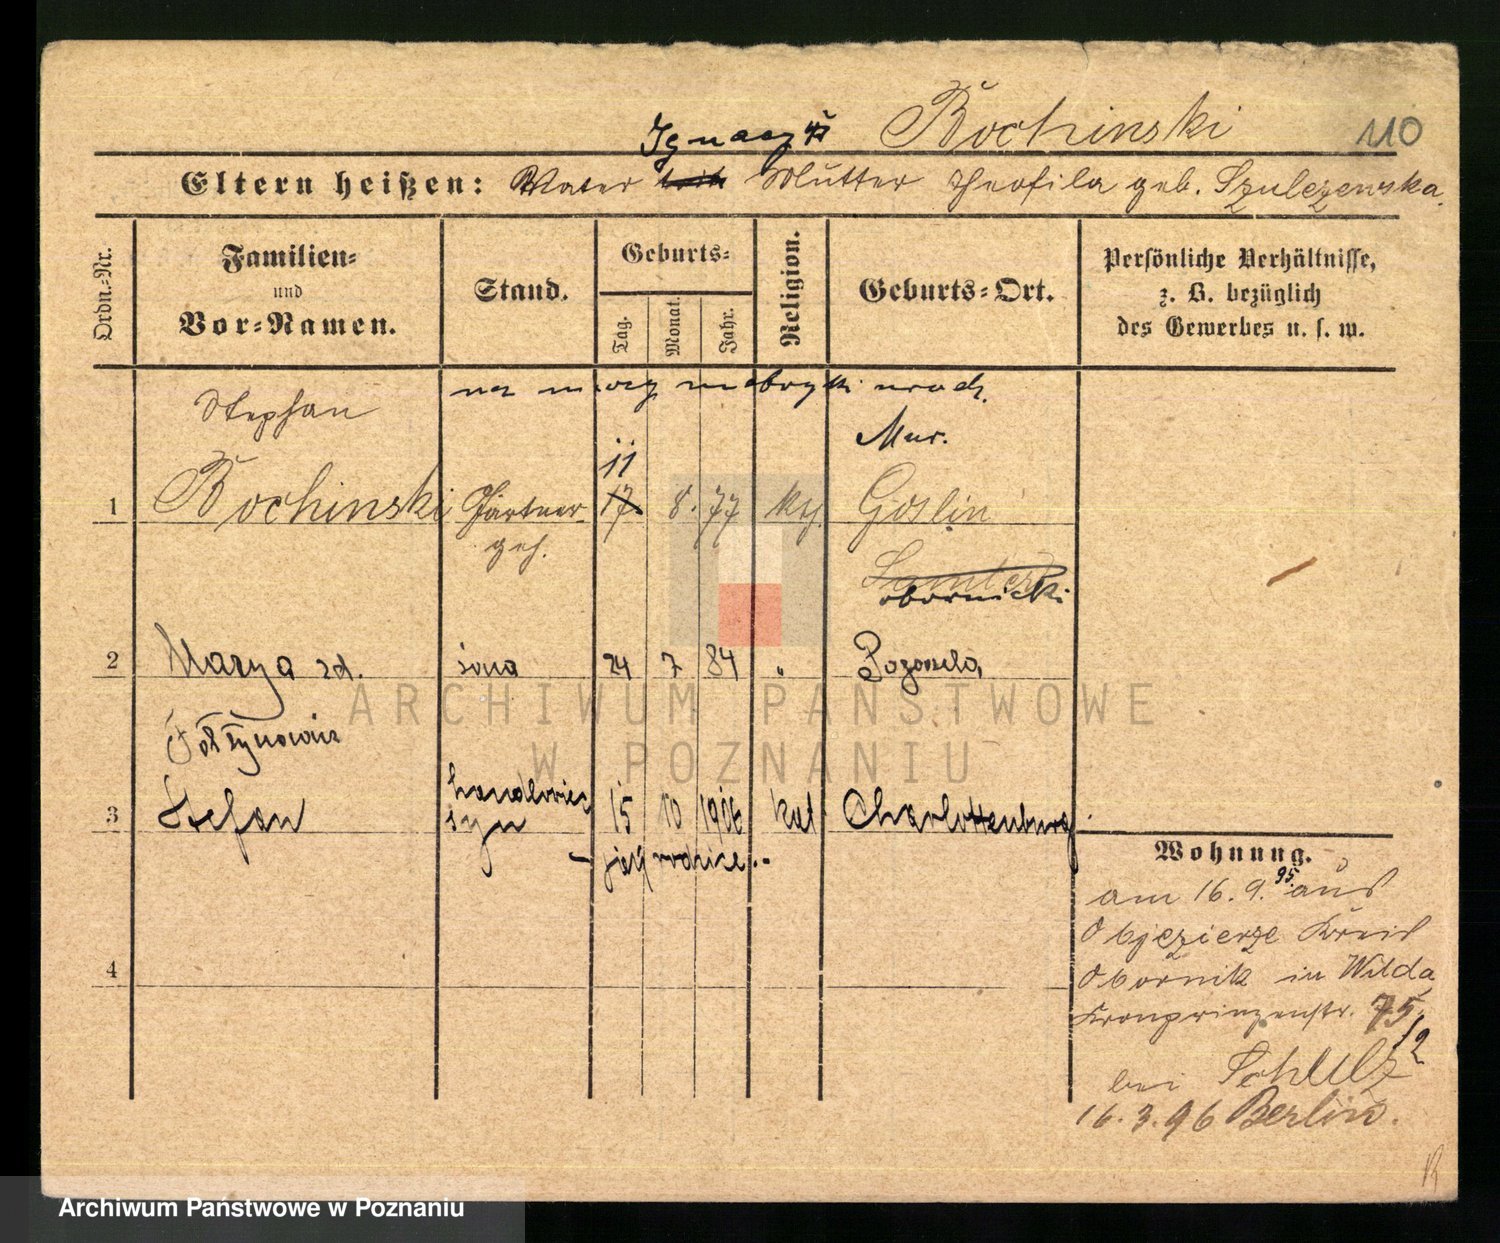 Ignacy Bochinski 110
Eltern heißen: Vater Mutter Theofila geb. Szulczewska.
Ordn.-Nr.
Familien-
und
Vor-Namen.
Stand.
Geburts-
Tag.
Monat.
Jahr.
Religion.
Geburts-Ort.
Persönliche Verhältnisse,
z. B. bezüglich
des Gewerbes u. s. w.
na mocy metryki urodz.
Stephan
Mur.
11
1 Bochinski Gärtner 17 8. 77 Goslin
geh.
obornicki
2 Marya zd. żona 24 7 84 "
3 Stefan handlowiec
syn 15 10 kat Charlottenburg
jak rodzice
4
Wohnung.
am 16. 9. 95. aus
Objezierze Kreis
Obornik in Wilda
Kronprinzenstr. 75.
12
bei Schulz
16. 3. 96 Berlin.
ARCHIWUM PAŃSTWOWE
W POZNANIU
Archiwum Państwowe w Poznaniu